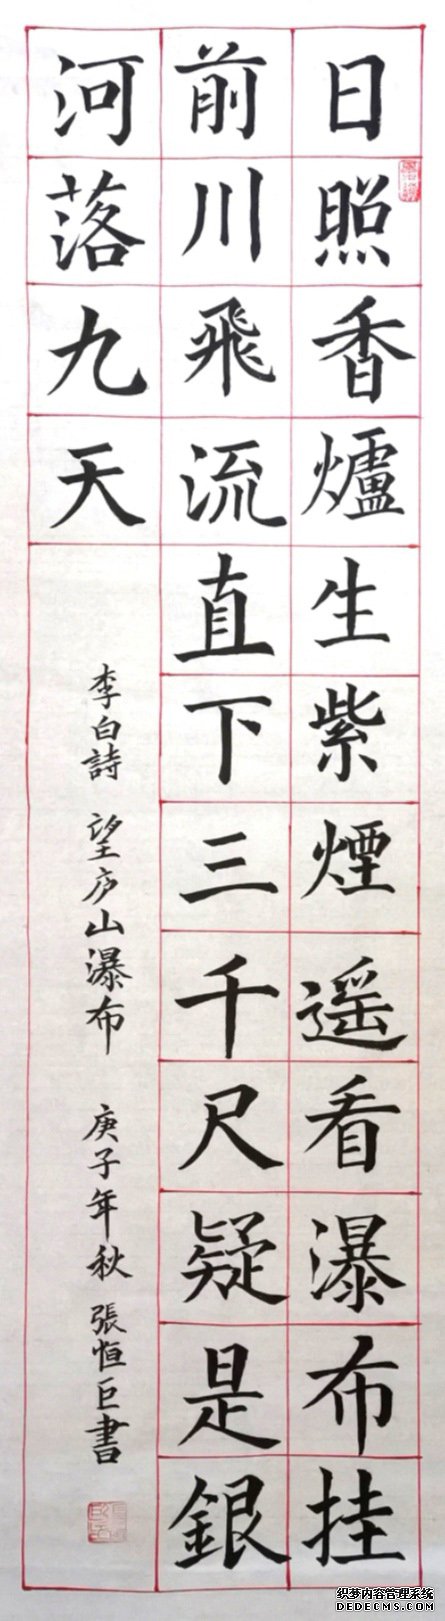 日照香爐生紫煙遥看瀑布挂
前川飛流直下三千尺疑是銀
河落九天
李白詩 望庐山瀑布 庚子年秋 張恒巨書
织梦内容管理系统
DEDECMS.COM